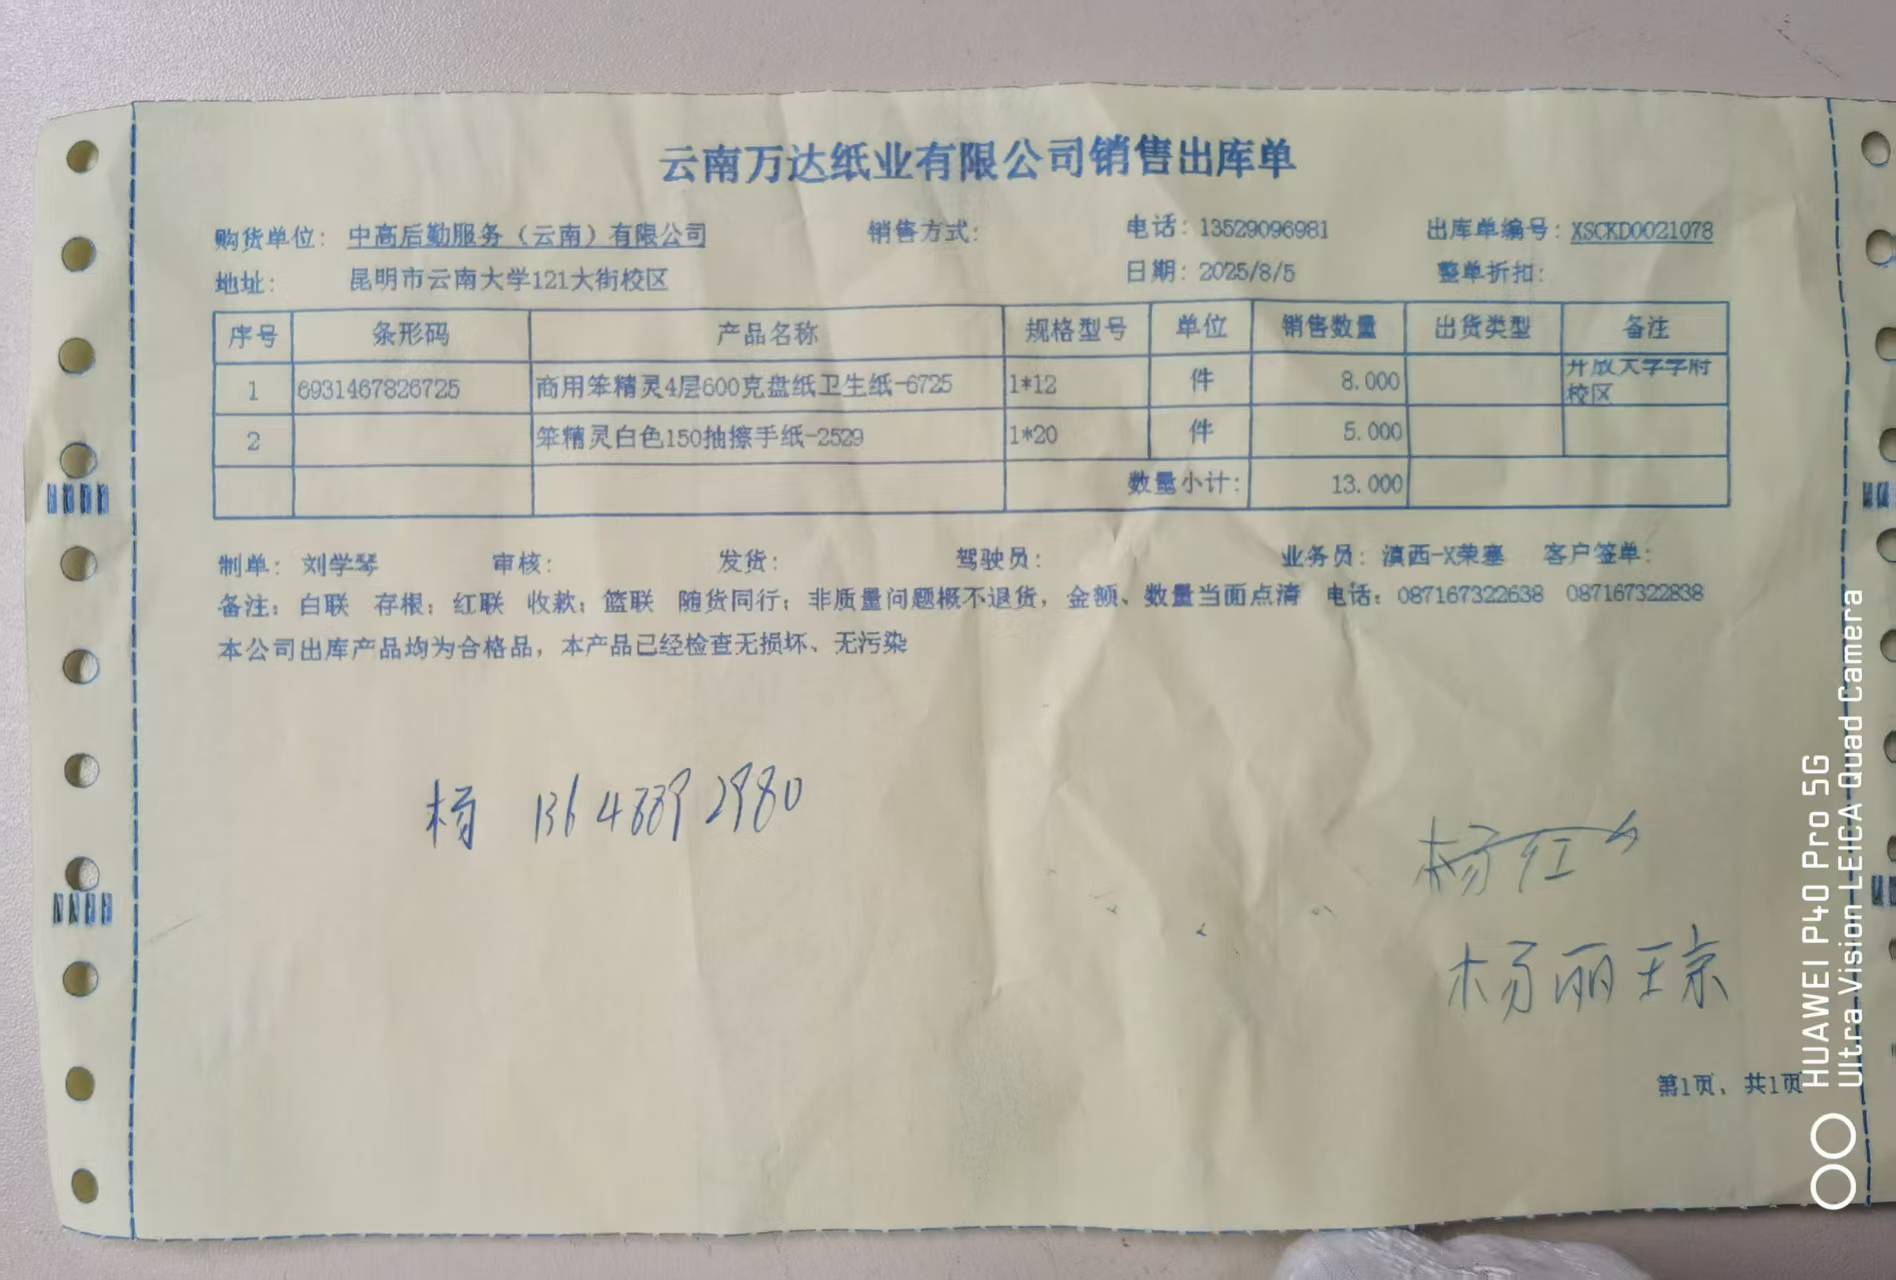 云南万达纸业有限公司销售出库单
购货单位: 中高后勤服务（云南）有限公司 销售方式: 电话: 13529096981 出库单编号: XSCKD0021078
地址: 昆明市云南大学121大街校区 日期: 2025/8/5 整单折扣:
序号 条形码 产品名称 规格型号 单位 销售数量 出货类型 备注
1 6931467826725 商用笨精灵4层600克盘纸卫生纸-6725 1*12 件 8.000 开放大学学府校区
2 笨精灵白色150抽擦手纸-2529 1*20 件 5.000
数量小计: 13.000
制单: 刘学琴 审核: 发货: 驾驶员: 业务员: 滇西-X荣塞 客户签单:
备注: 白联 存根; 红联 收款; 篮联 随货同行; 非质量问题概不退货, 金额、数量当面点清 电话: 087167322638 087167322838
本公司出库产品均为合格品, 本产品已经检查无损坏、无污染
杨
杨红
杨丽琼
第1页, 共1页
HUAWEI P40 Pro 5G
Ultra Vision LEICA Quad Camera